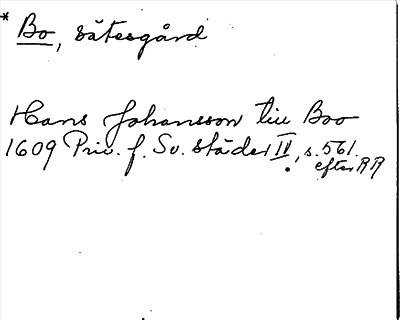 * Bo, sätesgård
Hans Johansson till Boo
1609 Priv. f. Sv. städer II, s. 561.
efter RR